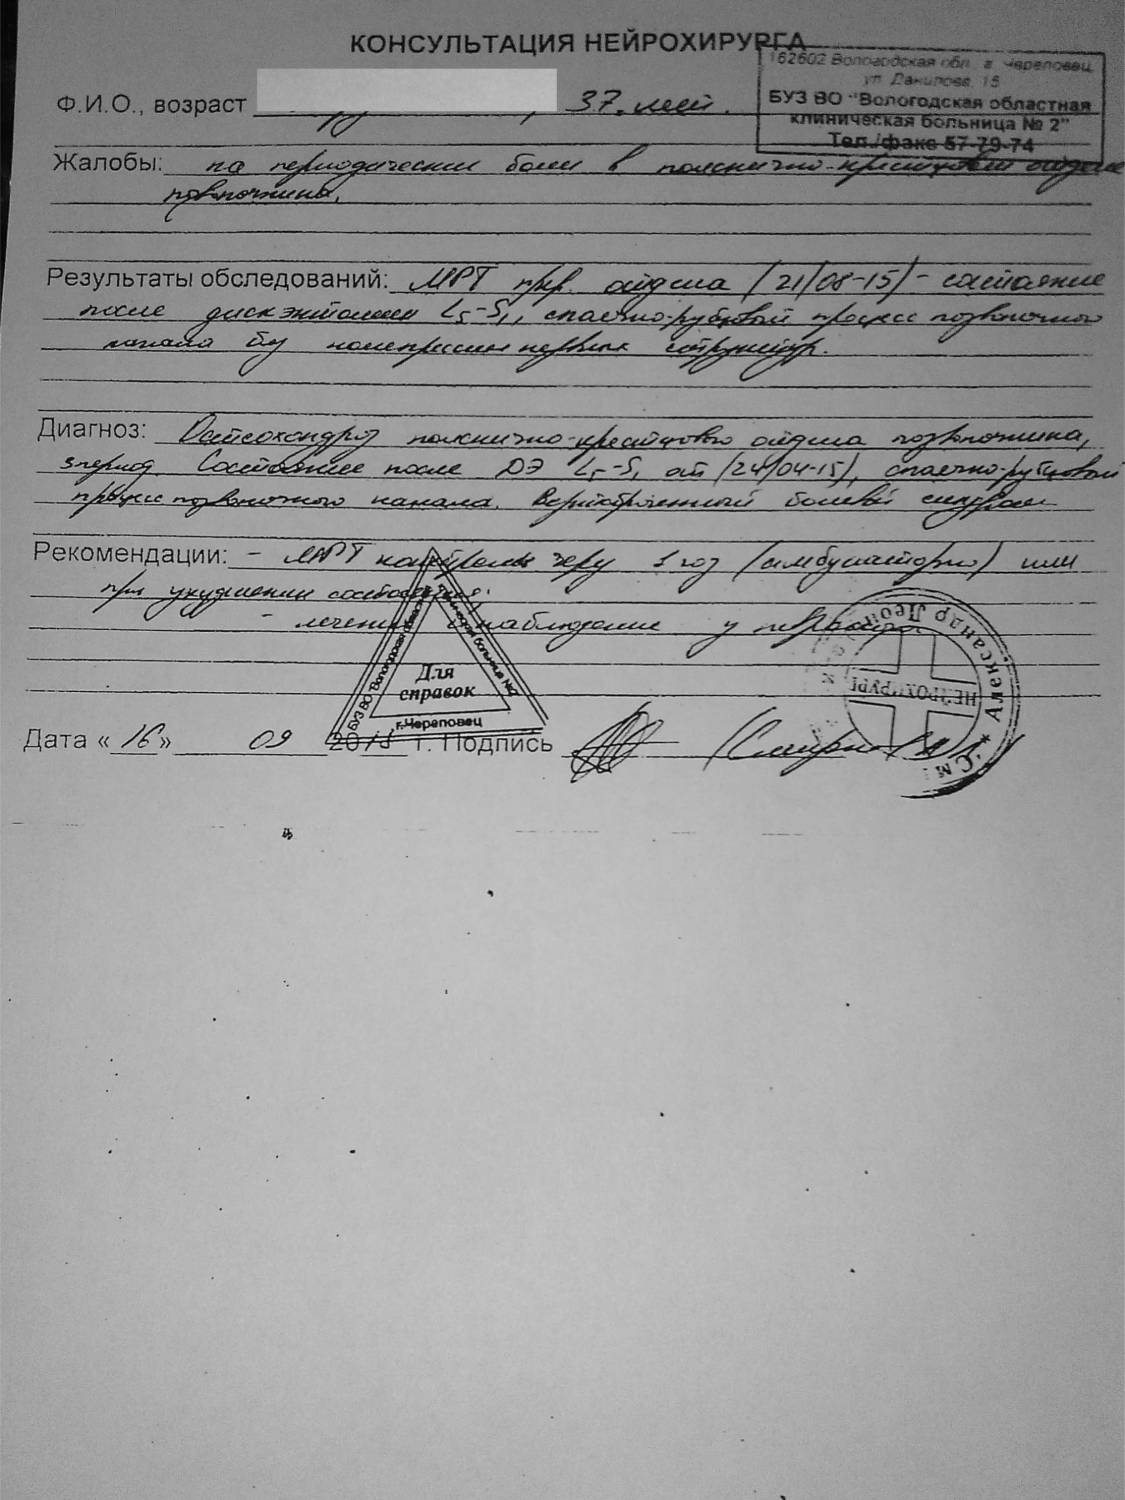 КОНСУЛЬТАЦИЯ НЕЙРОХИРУРГА
162602 Вологодская обл., г. Череповец,
ул. Данилова, 15
БУЗ ВО "Вологодская областная
клиническая больница № 2"
Тел./факс 57-79-74
Ф.И.О., возраст 37 лет.
Жалобы: на периодические боли в пояснично-крестцовом отделе
позвоночника.
Результаты обследований: МРТ отдела (21/08-15) - состояние
после дискэктомии L5-S1, спаечно-рубцовый процесс позвоночного
канала без компрессии нервных структур.
Диагноз: Остеохондроз пояснично-крестцового отдела позвоночника,
3 период. Состояние после ДЭ L5-S1 от (24/04-15), спаечно-рубцовый
процесс позвоночного канала. Вертеброгенный болевой синдром
Рекомендации: - МРТ контроль через 1 год (амбулаторно) или
при ухудшении состояния;
- лечение и наблюдение у невролога
БУЗ ВО "Вологодская областная клиническая больница №2"
Для
справок
г.Череповец
Александр
НЕЙРОХИРУРГ
Дата « 16 » 09 2015 г. Подпись (Смирнов А.Л.)